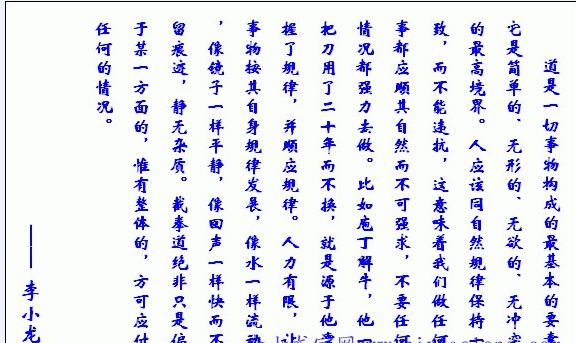 道是一切事物构成的最基本的要素
它是简单的、无形的、无欲的、无冲突
的最高境界。人应该同自然规律保持
致，而不能违抗，这意味着我们做任何
事都应顺其自然而不可强求，不要任何
情况都强力去做。比如庖丁解牛，他
把刀用了二十年而不换，就是源于他掌
握了规律，并顺应规律。人力有限，让
事物按其自身规律发展，像水一样流动
，像镜子一样平静，像回声一样快而不
留痕迹，静无杂质。截拳道绝非只是偏
于某一方面的，惟有整体的，方可应付
任何的情况。
——李小龙